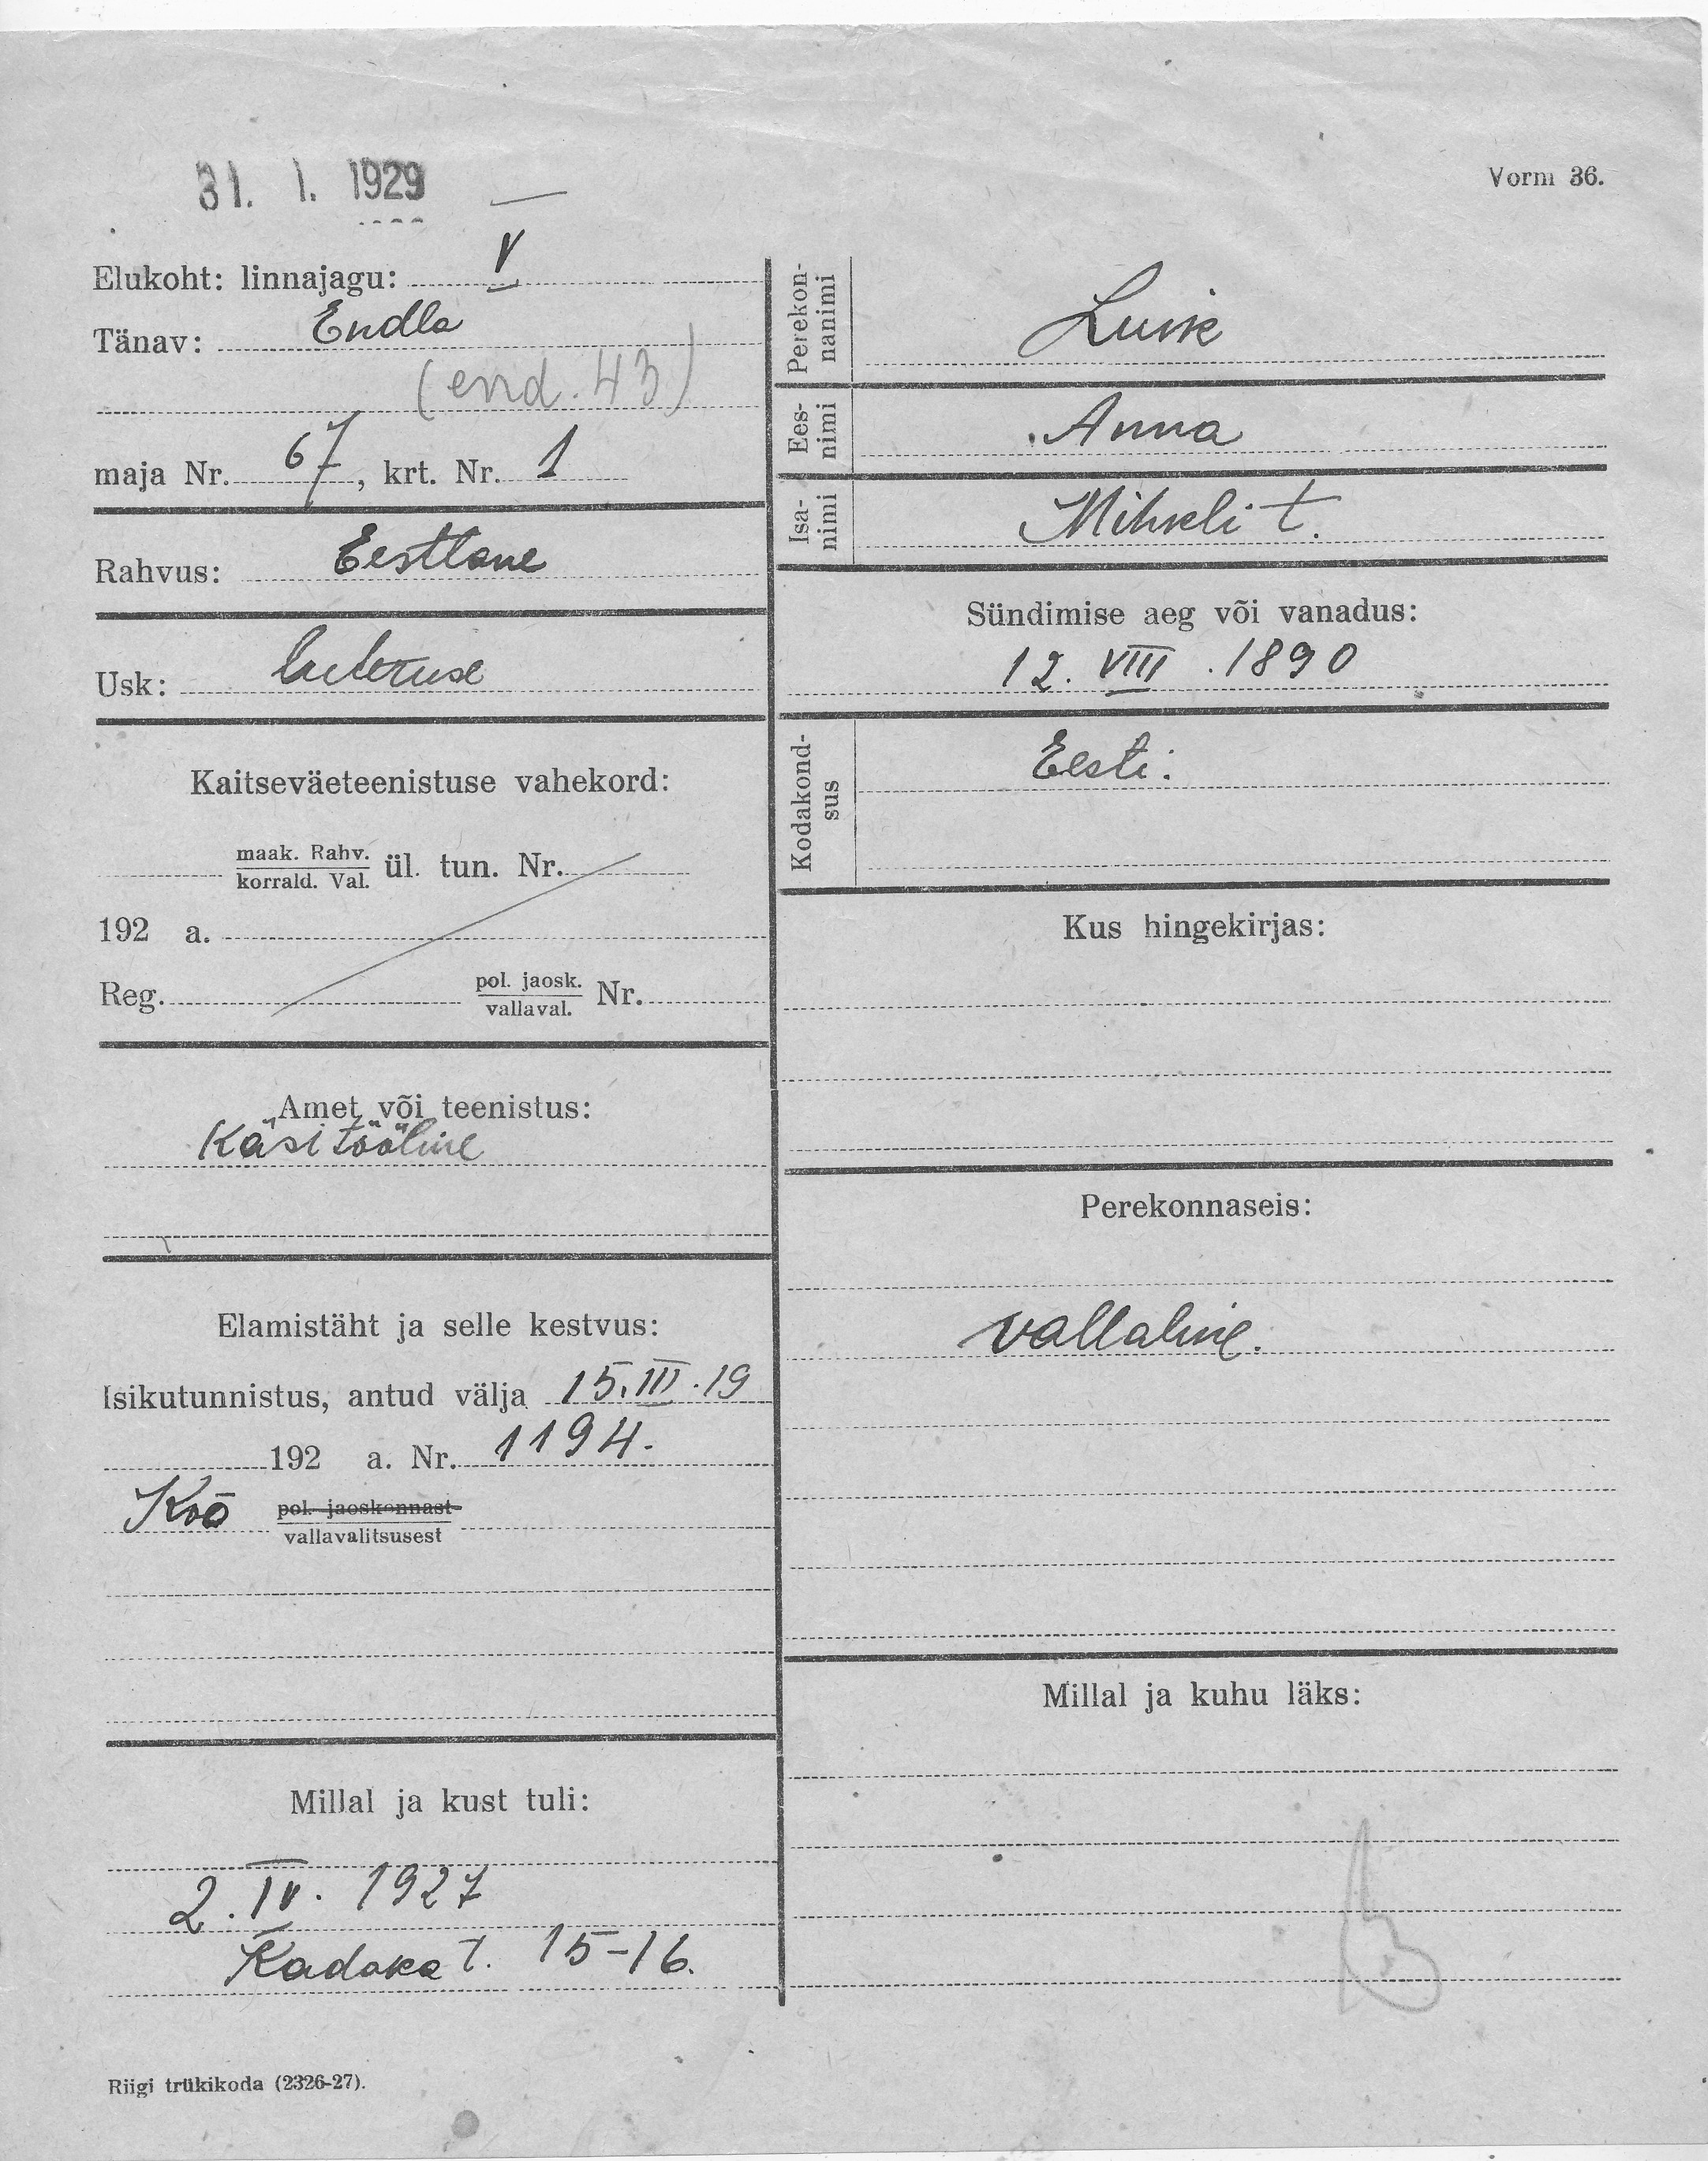 31. 1. 1929
Vorm 36.
Elukoht: linnajagu: V
Tänav: Endla
(end. 43)
maja Nr. 67, krt. Nr. 1
Rahvus: Eestlane
Usk: luteruse
Kaitseväeteenistuse vahekord:
maak. Rahv.
korrald. Val. ül. tun. Nr.
192 a.
Reg. pol. jaosk.
vallaval. Nr.
Amet või teenistus:
Käsitööline
Elamistäht ja selle kestvus:
Isikutunnistus, antud välja 15. III. 19
192 a. Nr. 1194.
Kõo pol. jaoskonnast
vallavalitsusest
Millal ja kust tuli:
2. IV. 1927
Kadaka t. 15-16.
Perekon-
nanimi
Luik
Ees-
nimi
Anna
Isa-
nimi
Mihkli t.
Sündimise aeg või vanadus:
12. VIII. 1890
Kodakond-
sus
Eesti.
Kus hingekirjas:
Perekonnaseis:
vallaline.
Millal ja kuhu läks:
Riigi trükikoda (2326-27).